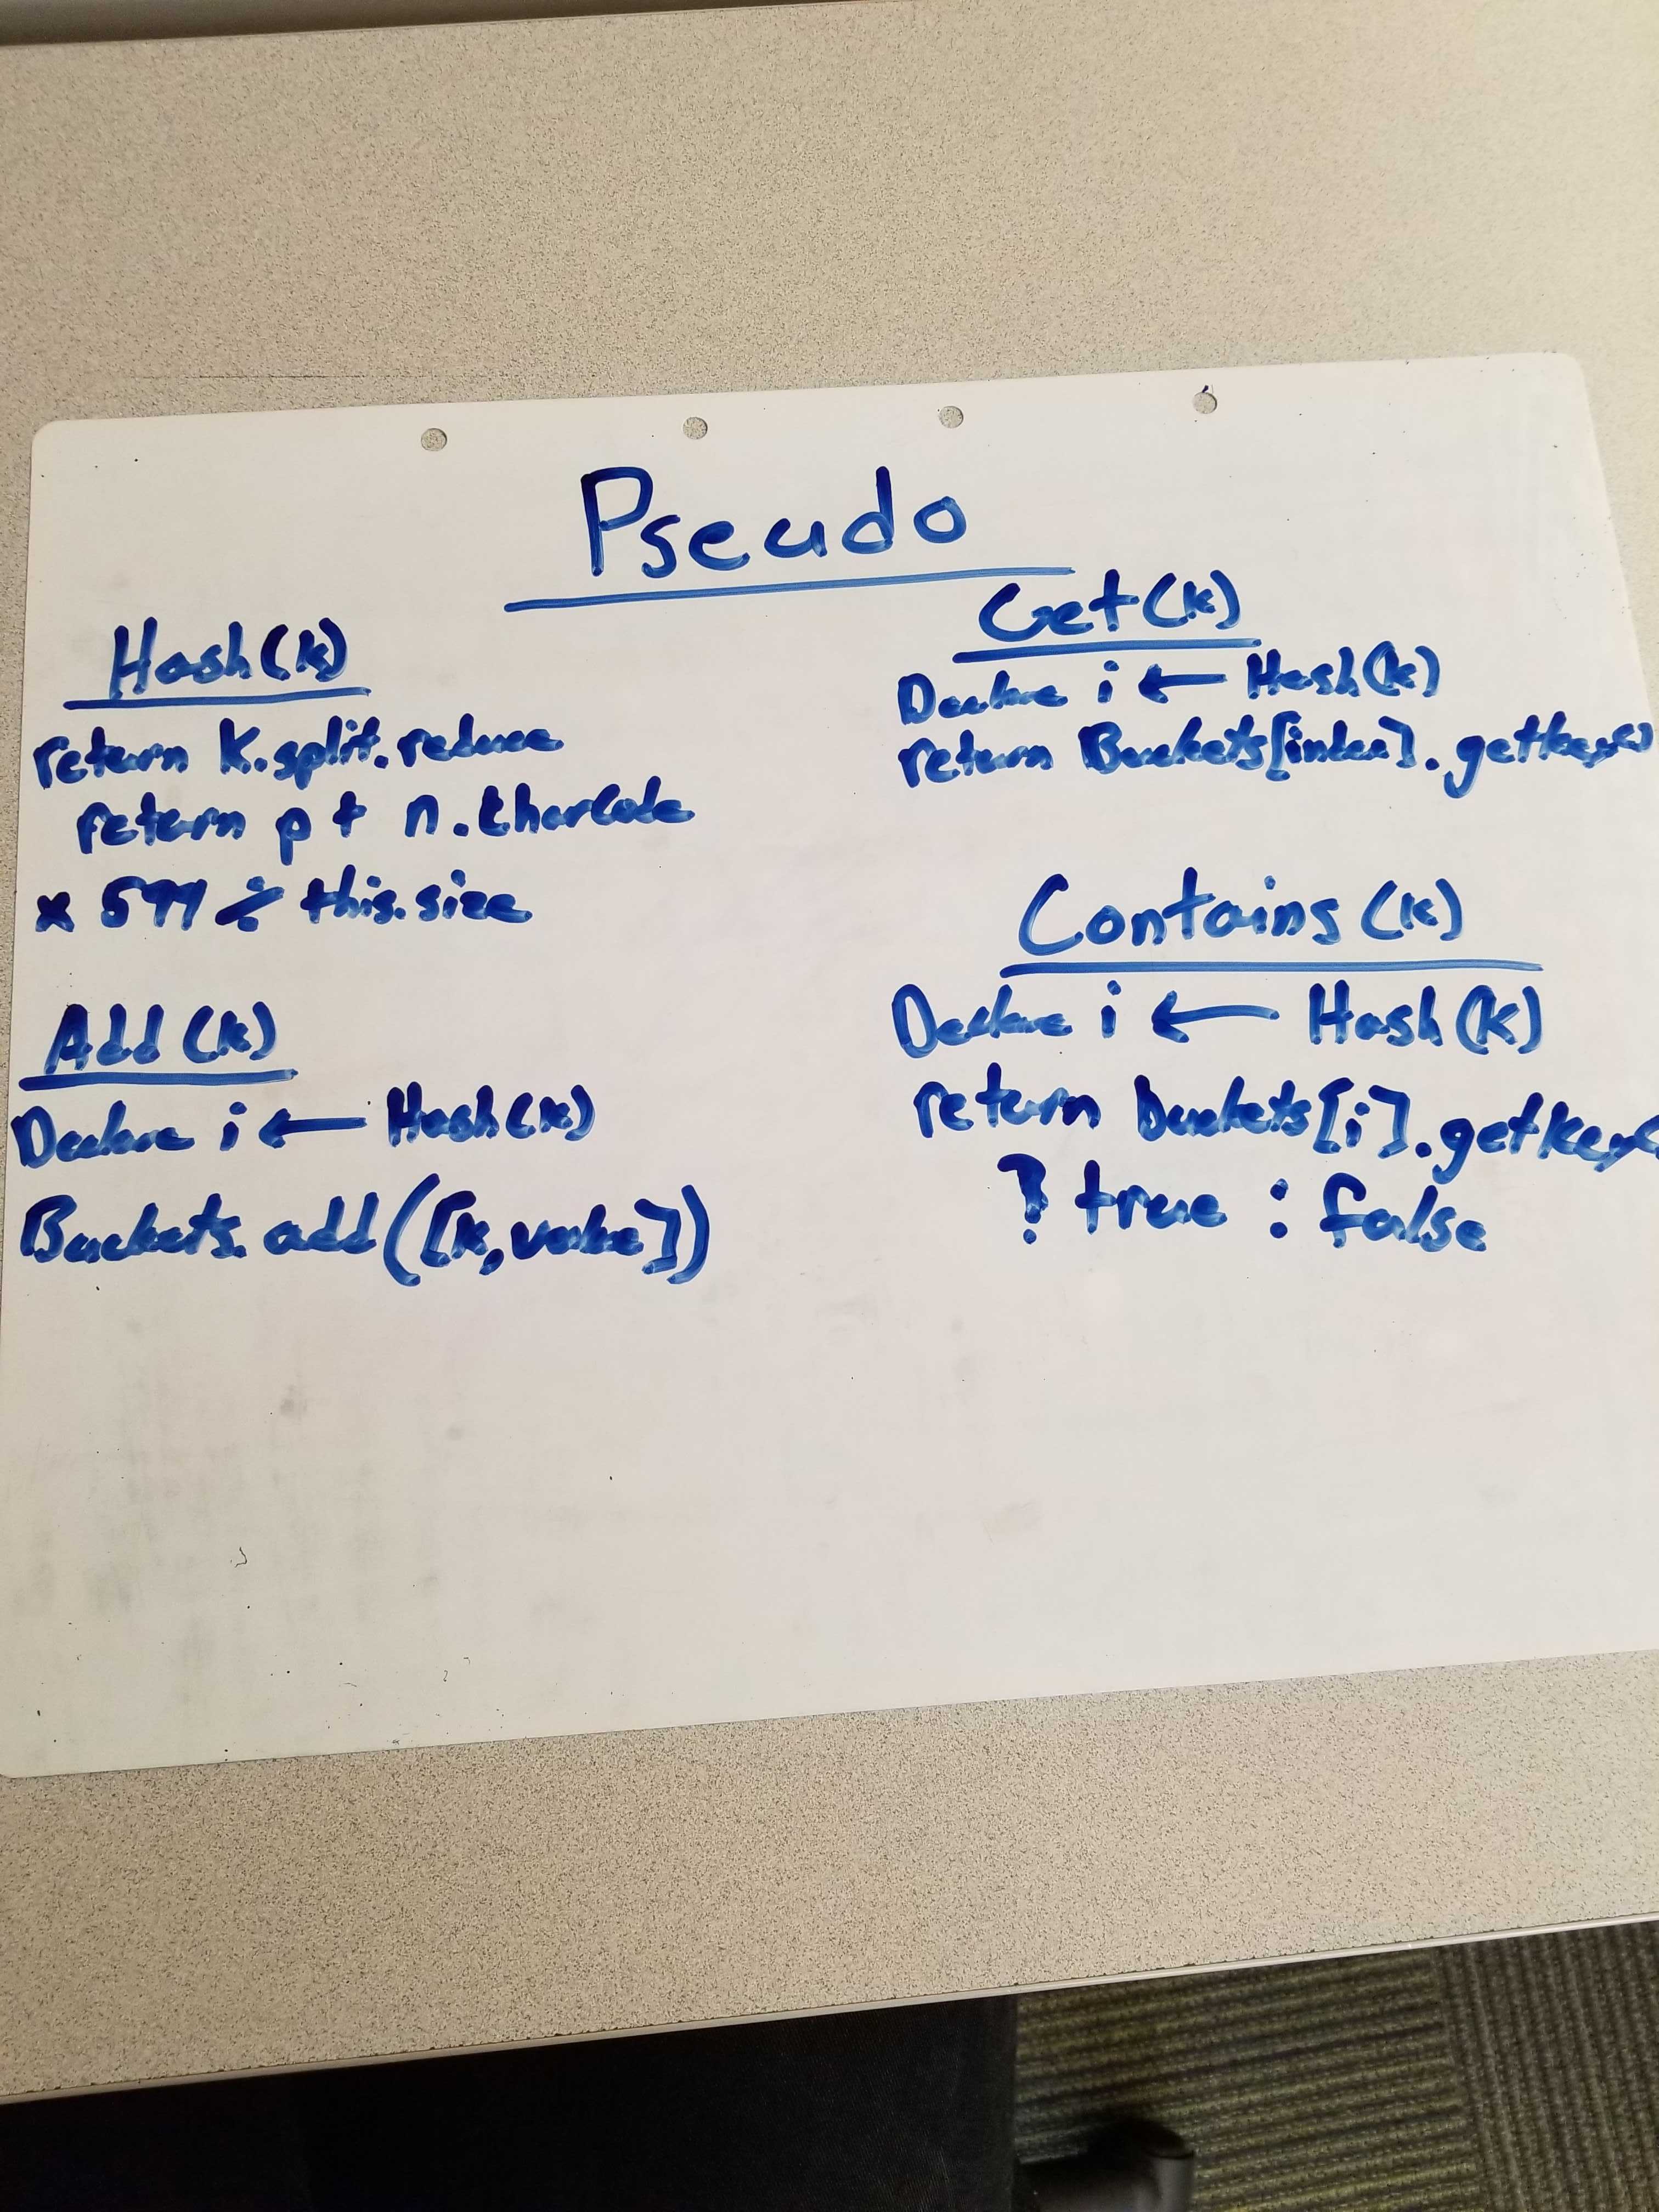 Pseudo
Hash(k)
return k.split.reduce
return p + n.charCode
x 599 % this.size
Add(k)
Declare i ← Hash(k)
Buckets.add([k,value])
Get(k)
Declare i ← Hash(k)
return Buckets[index].getkey()
Contains(k)
Declare i ← Hash(k)
return buckets[i].getkey(
? true : false